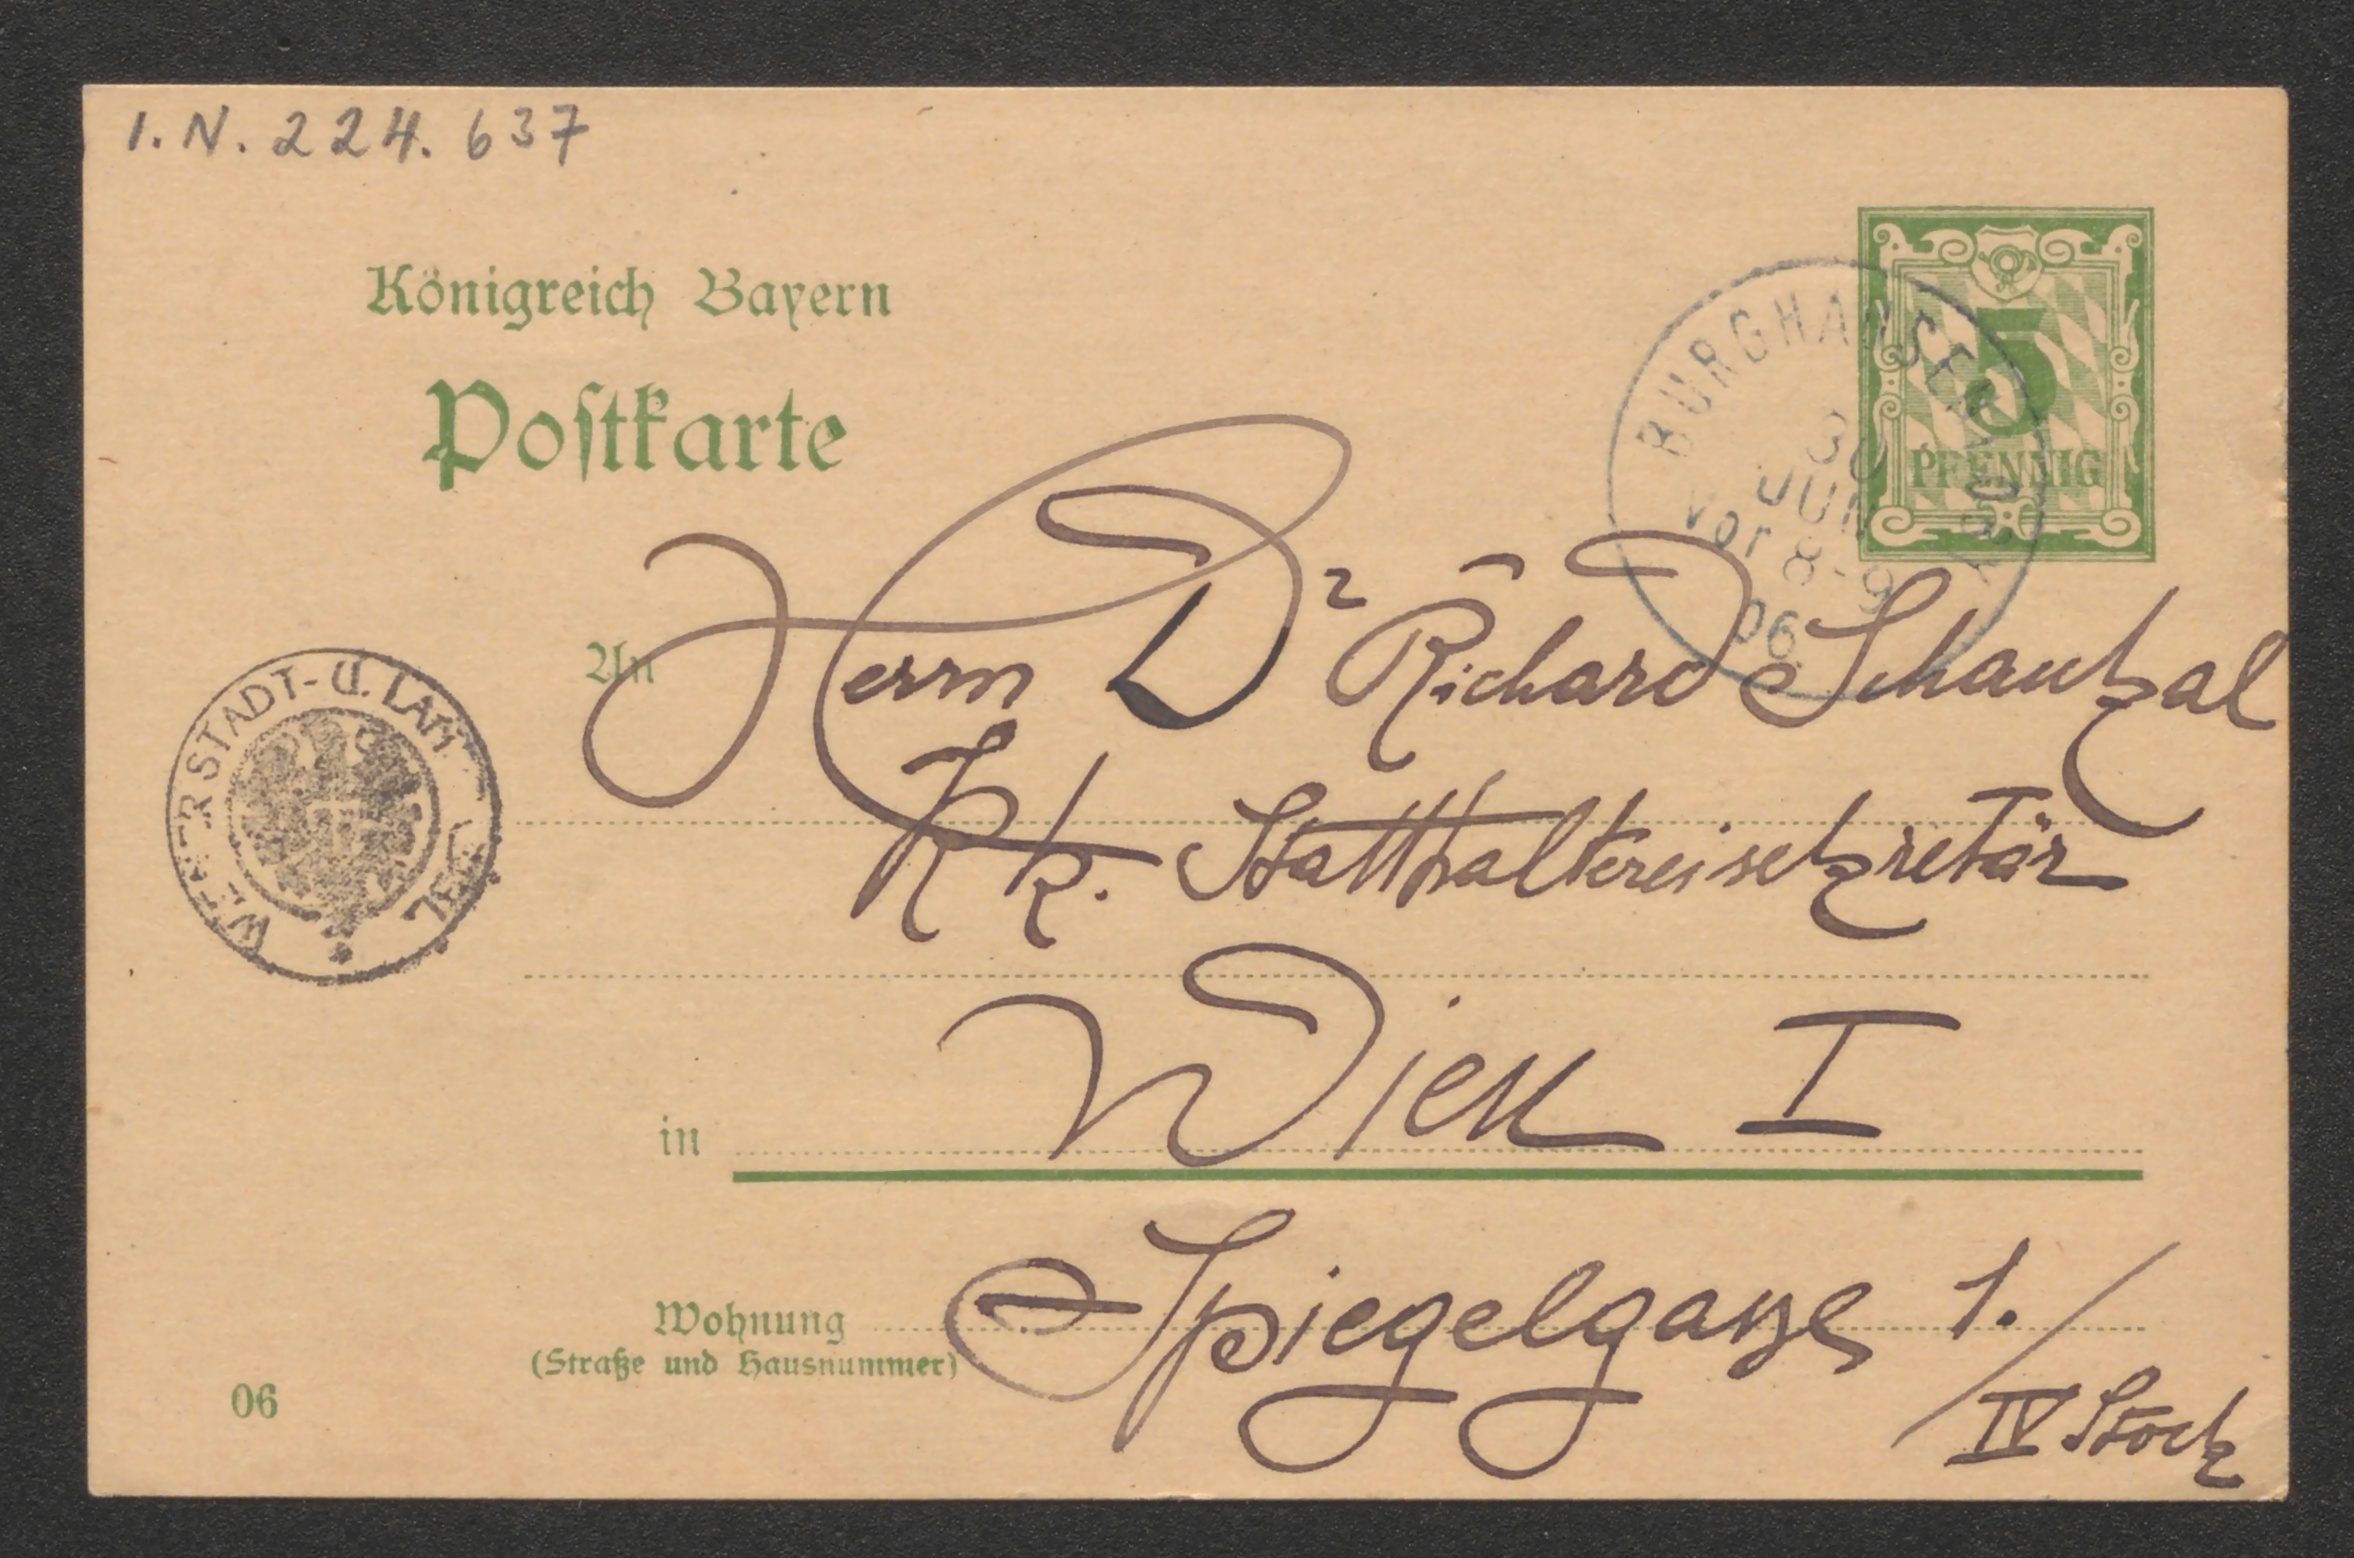 I.N. 224.637
Königreich Bayern
Postkarte
5
PFENNIG
BURGHAUSEN
30
JUN
Vor 8-9
06
An Herrn Dr Richard Schaukal
K k. Statthaltereisekretär
in Wien I
Wohnung Spiegelgasse 1./
(Straße und Hausnummer)
IV Stock
06
WIENER STADT- U. LAN